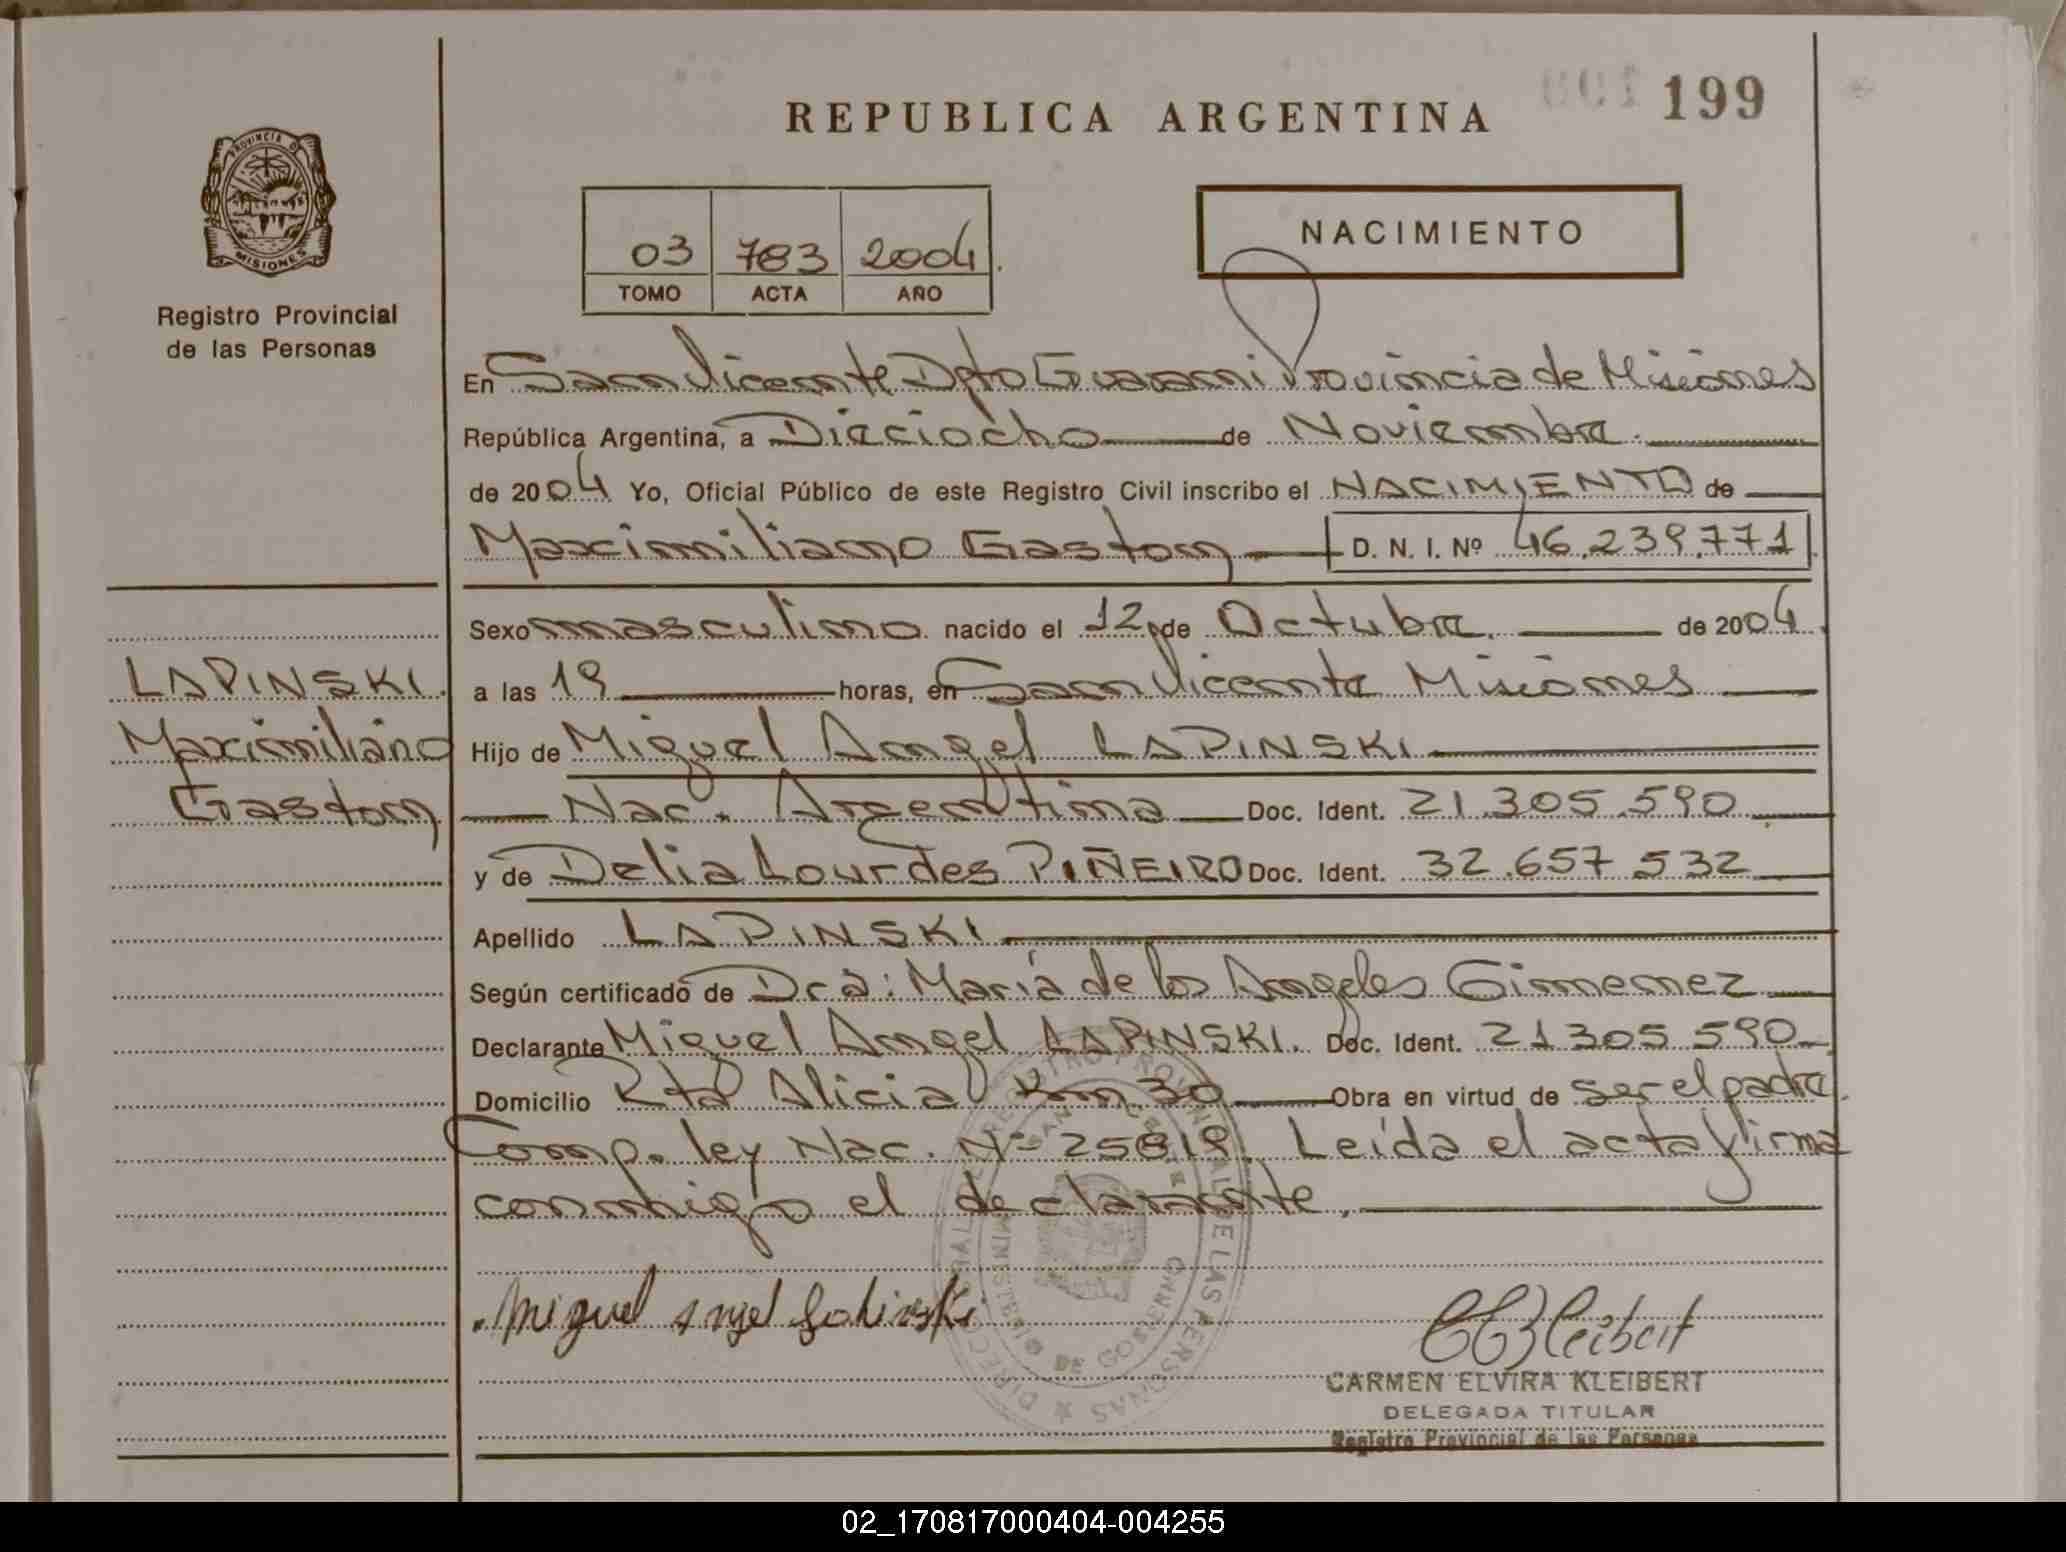 199
REPUBLICA ARGENTINA
PROVINCIA DE
MISIONES
Registro Provincial
de las Personas
03 783 2004
TOMO ACTA AÑO
NACIMIENTO
En San Vicente Dpto Guarani Provincia de Misiones
República Argentina, a Dieciocho de Noviembre
de 2004 Yo, Oficial Público de este Registro Civil inscribo el NACIMIENTO de
Maximiliano Gaston D. N. I. Nº 46.239.771
Sexo masculino nacido el 12 de Octubre de 2004
a las 19 horas, en San Vicente Misiones
Hijo de Miguel Angel LAPINSKI
Nac. Argentina Doc. Ident. 21.305.590
y de Delia Lourdes PIÑEIRO Doc. Ident. 32.657.532
Apellido LAPINSKI
Según certificado de Dra: María de los Angeles Gimenez
Declarante Miguel Angel LAPINSKI. Doc. Ident. 21 305 590
Domicilio Rta Alicia Km 30 Obra en virtud de ser el padre.
Comp. ley Nac. Nº 25819. Leída el acta firma
conmigo el declarante.
LAPINSKI.
Maximiliano
Gaston
Miguel Angel Lapinski
CARMEN ELVIRA KLEIBERT
DELEGADA TITULAR
Registro Provincial de las Personas
02_170817000404-004255